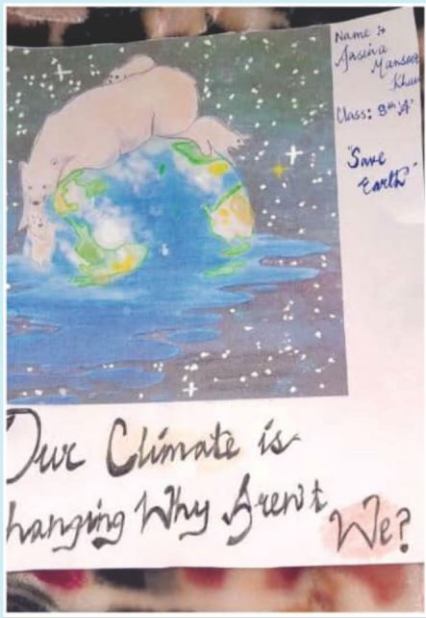 Name :-
Mansoor
Khan
Class: 8th 'A'
"Save
Earth"
Our Climate is
hanging Why Aren't
We?